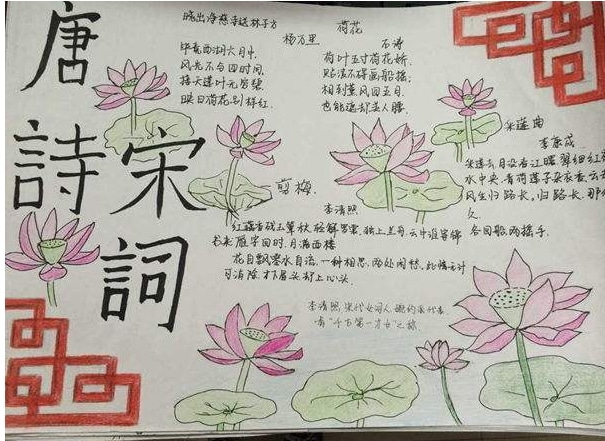 唐
詩宋
詞
晓出净慈寺送林子方
杨万里
毕竟西湖六月中,
风光不与四时同,
接天莲叶无穷碧
映日荷花别样红.
荷花
石涛
荷叶五寸荷花娇,
贴波不碍画船摇;
相到薰风四五月,
也能遮却美人腰.
采莲曲
李康成
采莲去月没春江曙翠钿红
水中央青荷莲子杂衣香云
风生归路长,归路长,那
久
各回船两摇手.
剪梅.
李清照
红藕香残玉簟秋,轻解罗裳,独上兰舟,云中谁寄锦
书来雁字回时,月满西楼
花自飘零水自流,一种相思,两处闲愁,此情无计
可消除,才下眉头却上心头.
李清照,宋代女词人,婉约派代表,
有"千古第一才女"之称